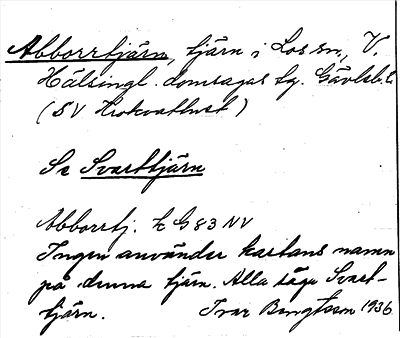 Abborrtjärn, tjärn i Los sn, V.
Hälsingl. domsagas tg. Gävleb. l.
(SV Krokvattnet)
Se Svarttjärn
Abborrtj. k G 83 NV
Ingen använder kartans namn
på denna tjärn. Alla säga Svart-
tjärn. Ivar Bengtsson 1936